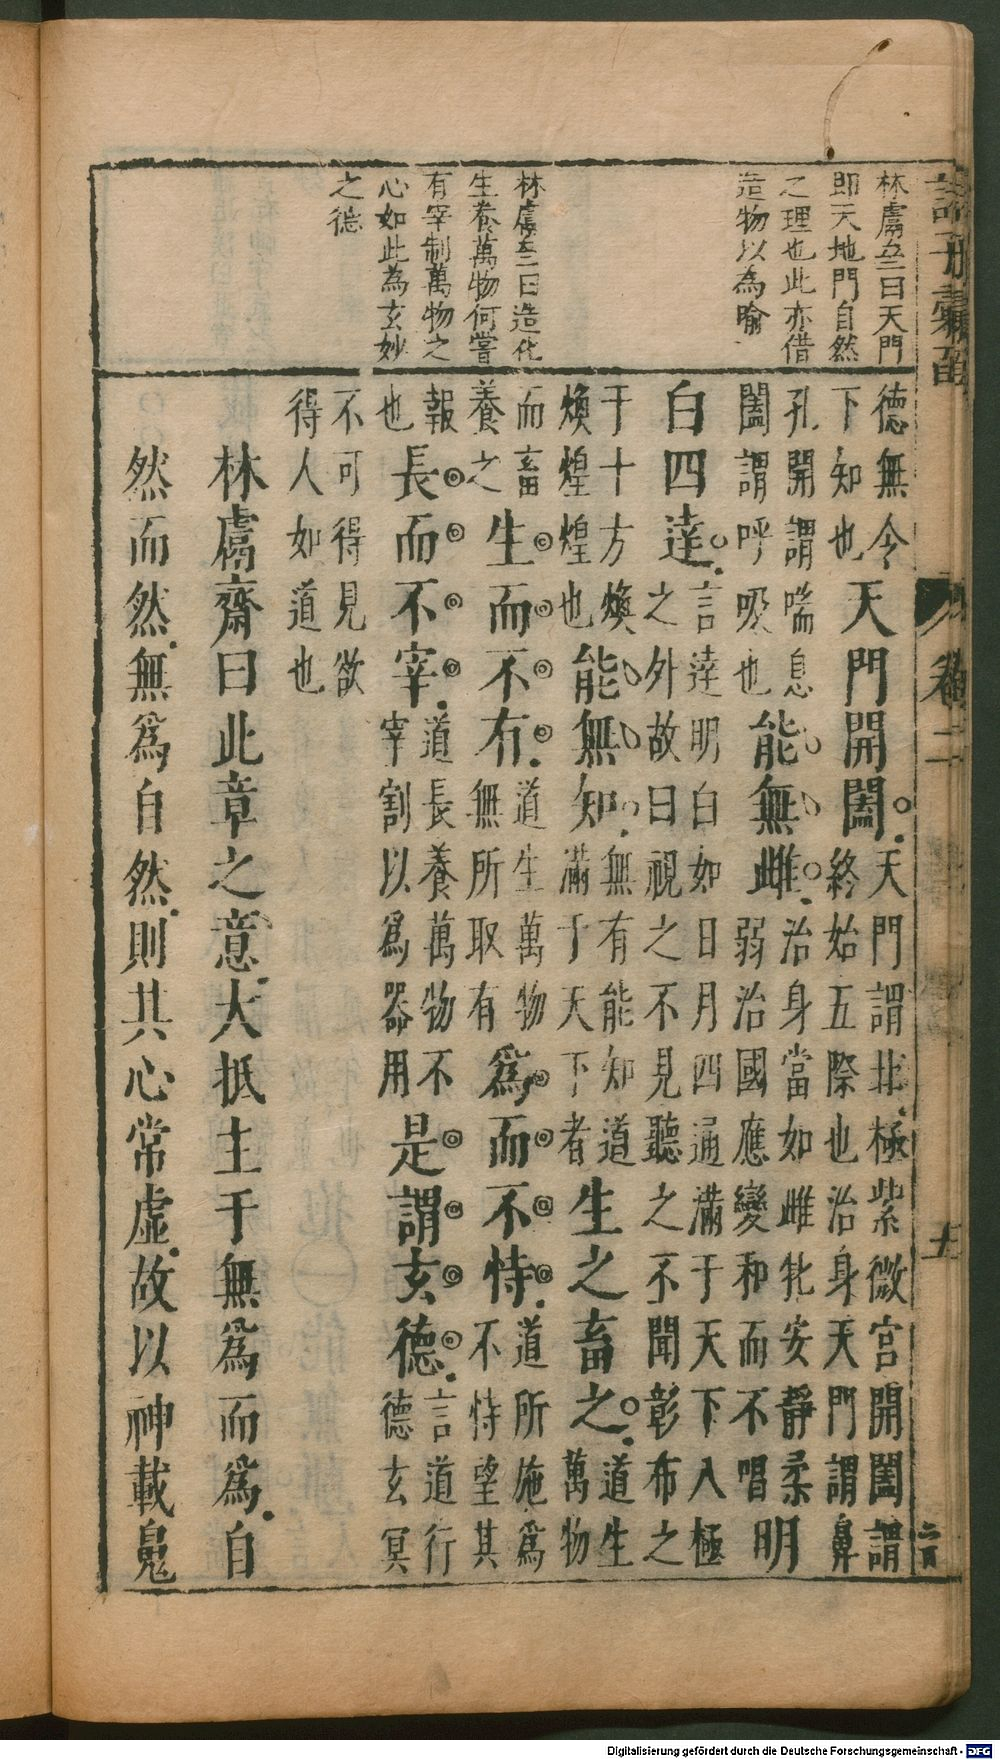 卷二
林鬳齋曰天門
即天地門自然
之理也此亦借
造物以為喻
林鬳齋曰造化
生養萬物何嘗
有宰制萬物之
心如此為玄妙
之德
德無令下知也天門開闔。天門謂北極紫微宮開闔謂終始五際也治身天門謂鼻
孔開謂喘息闔謂呼吸也能無雌。治身當如雌牝安靜柔弱治國應變和而不唱明
白四達。言達明白如日月四通滿于天下入極之外故曰視之不見聽之不聞彰布之
于十方煥煥煌煌也能無知。無有能知道滿于天下者生之畜之。道生萬物
而畜養之生而不有。道生萬物無所取有爲而不恃。道所施爲不恃望其
報也長而不宰。道長養萬物不宰割以爲器用是謂玄德。言道行德玄冥
不可得見欲得人如道也
林鬳齋曰此章之意。大抵主于無爲而爲。自
然而然。無爲自然。則其心常虛。故以神載鬼
Digitalisierung gefördert durch die Deutsche Forschungsgemeinschaft - DFG